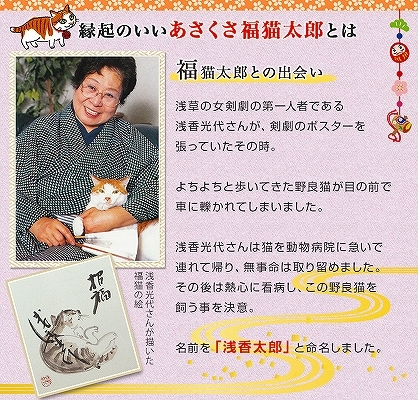 縁起のいいあさくさ福猫太郎とは
福猫太郎との出会い
浅草の女剣劇の第一人者である
浅香光代さんが、剣劇のポスターを
張っていたその時。
よちよちと歩いてきた野良猫が目の前で
車に轢かれてしまいました。
浅香光代さんは猫を動物病院に急いで
連れて帰り、無事命は取り留めました。
その後は熱心に看病し、この野良猫を
飼う事を決意。
名前を「浅香太郎」と命名しました。
浅香光代さんが描いた
福猫の絵